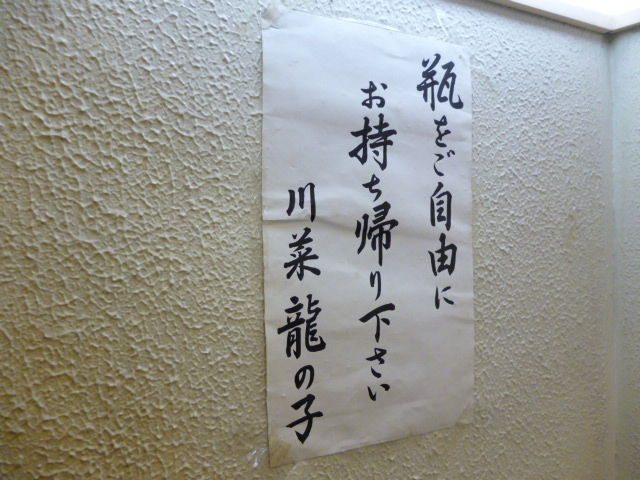 瓶をご自由に
お持ち帰り下さい
川菜龍の子